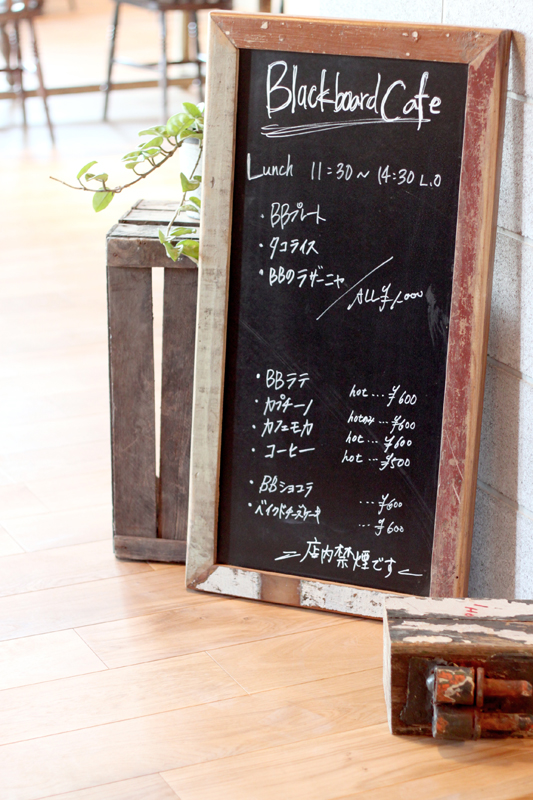 Blackboard Cafe
Lunch 11:30~14:30 L.O
・BBプレート
・タコライス
・BBのラザーニャ
ALL ¥1,000
・BBラテ hot … ¥600
・カプチーノ hotのみ … ¥600
・カフェモカ hot … ¥600
・コーヒー hot … ¥500
・BBショコラ … ¥600
・ベイクドチーズケーキ … ¥600
店内禁煙です